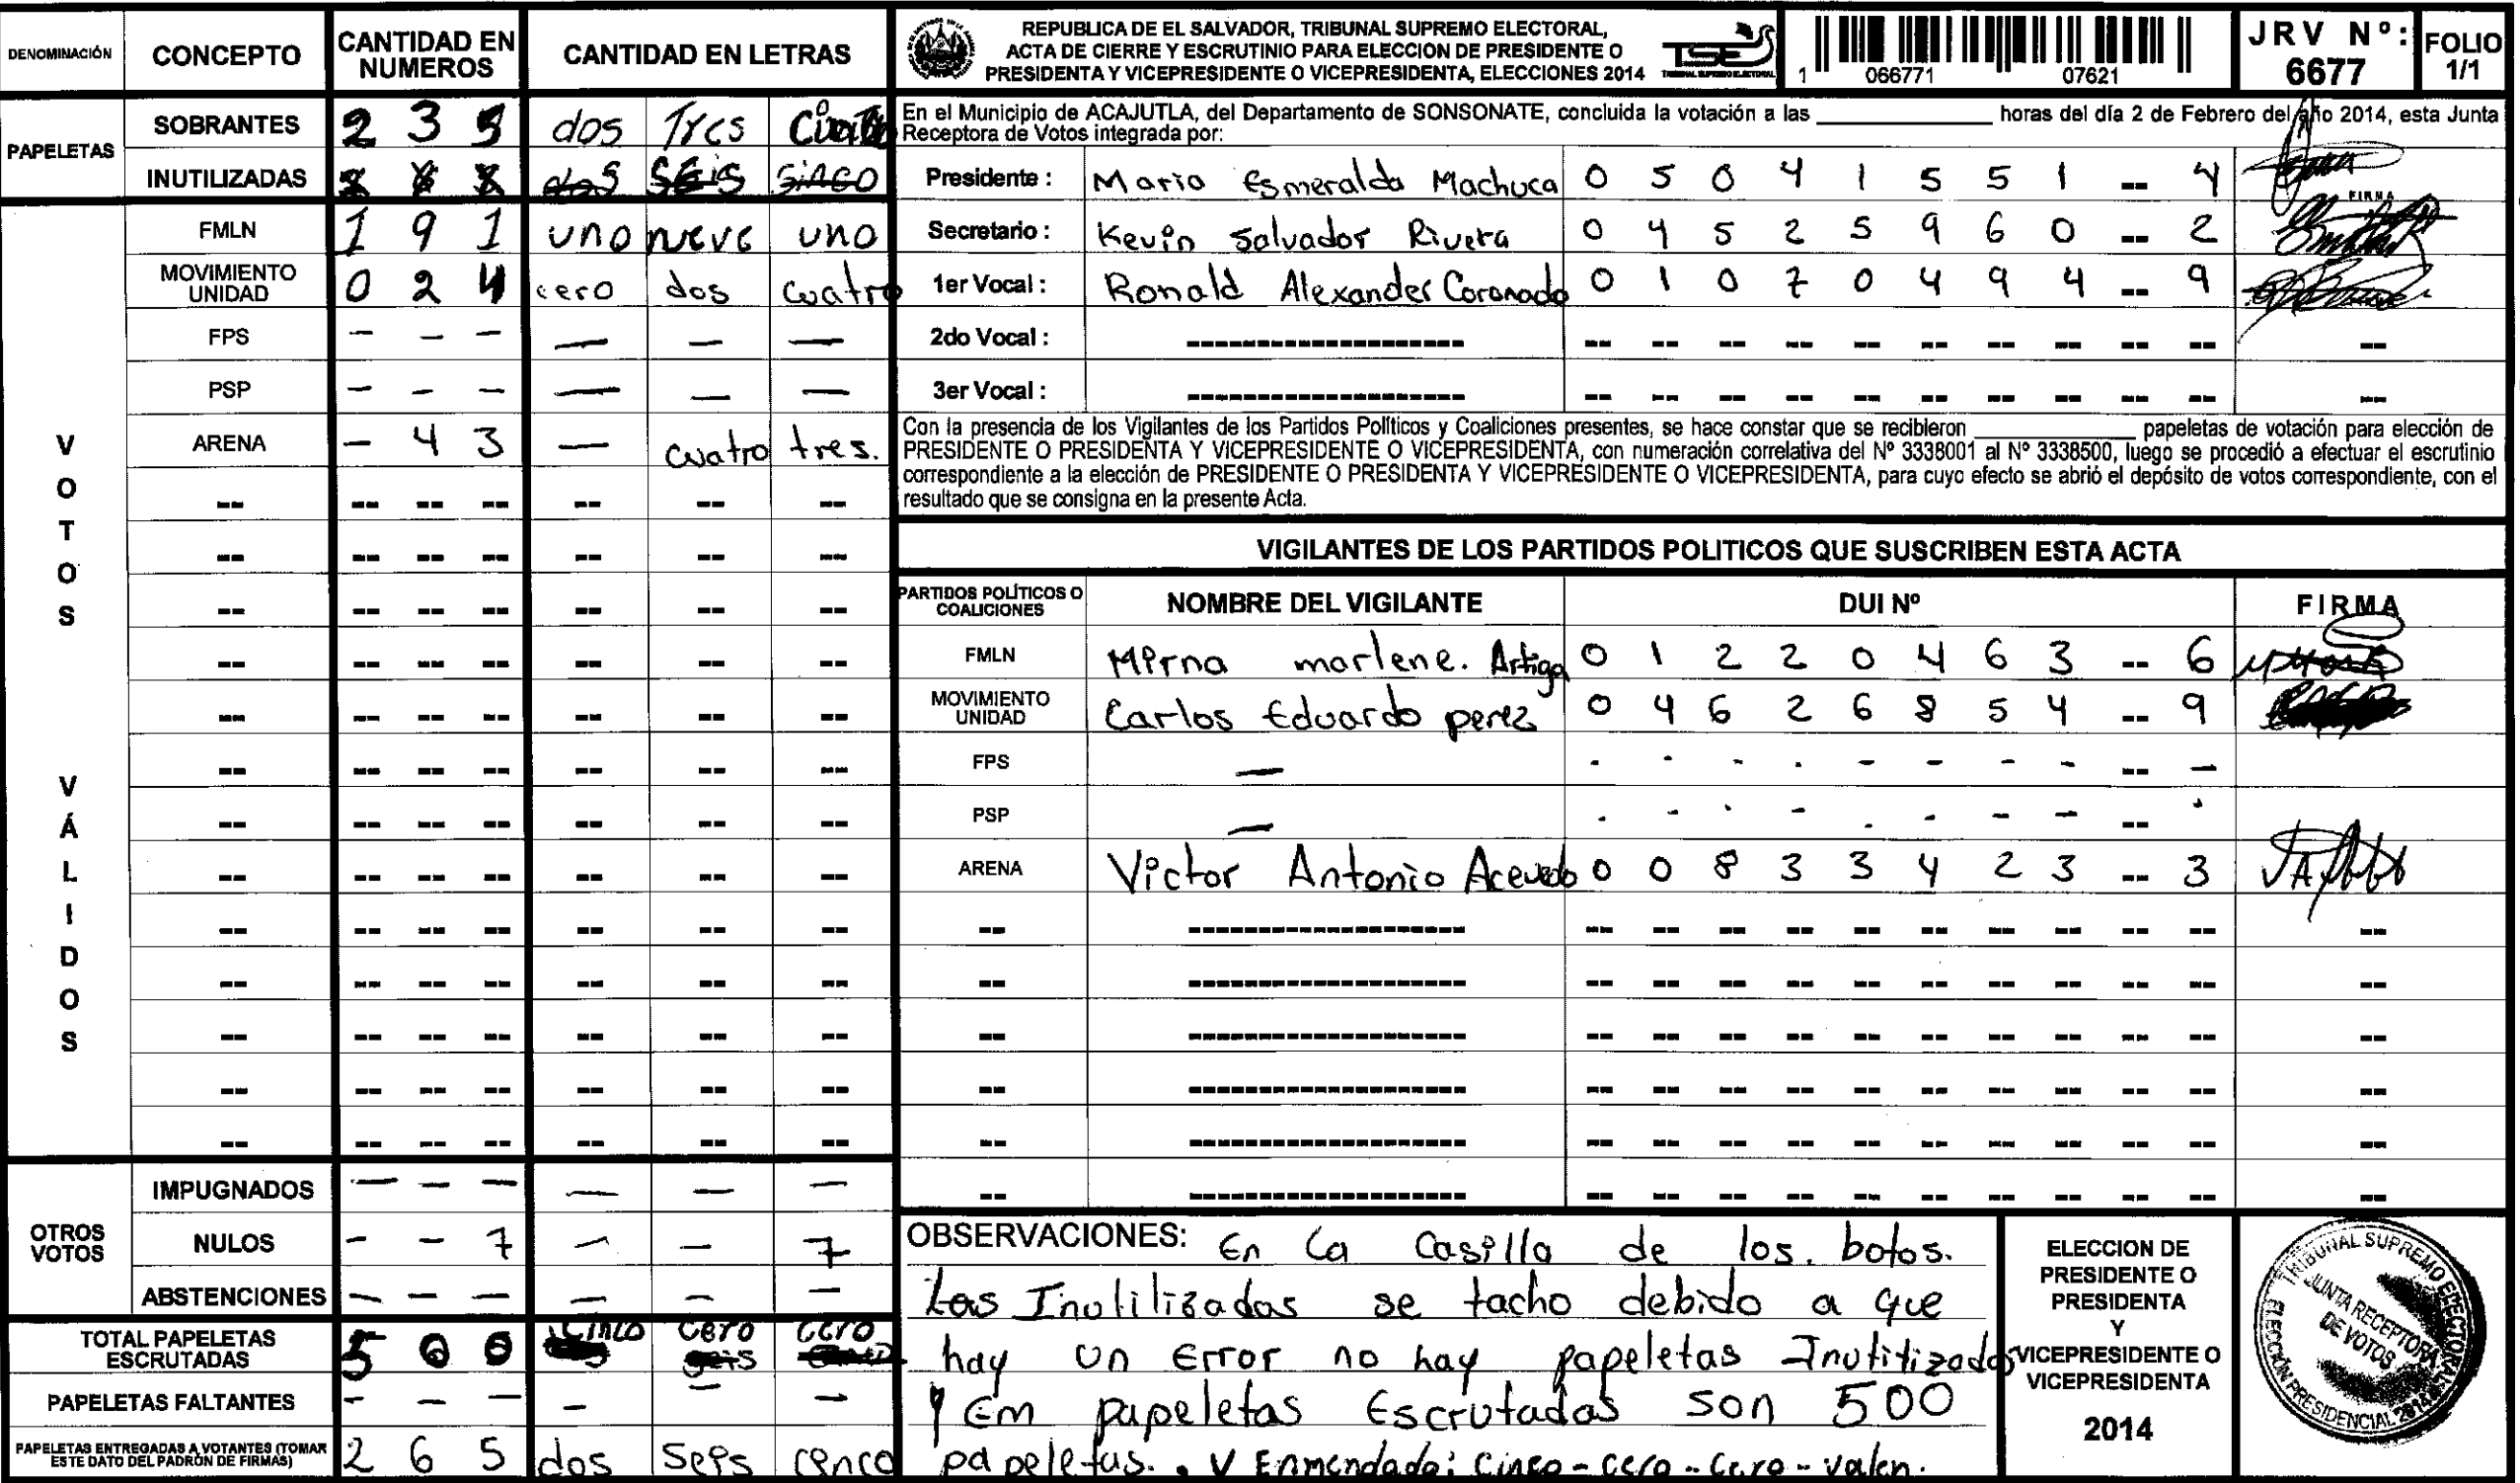 DENOMINACIÓN CONCEPTO CANTIDAD EN NUMEROS CANTIDAD EN LETRAS
PAPELETAS
SOBRANTES 2 3 5 dos Tres
INUTILIZADAS dos SEis SiNCO
VOTOS VÁLIDOS
FMLN 1 9 1 uno nueve uno
MOVIMIENTO UNIDAD 0 2 4 cero dos cuatro
FPS - - - - - -
PSP - - - - - -
ARENA - 4 3 - cuatro tres.
-- -- -- -- -- -- --
-- -- -- -- -- -- --
-- -- -- -- -- -- --
-- -- -- -- -- -- --
-- -- -- -- -- -- --
-- -- -- -- -- -- --
-- -- -- -- -- -- --
-- -- -- -- -- -- --
-- -- -- -- -- -- --
-- -- -- -- -- -- --
-- -- -- -- -- -- --
-- -- -- -- -- -- --
-- -- -- -- -- -- --
OTROS VOTOS
IMPUGNADOS - - - - - -
NULOS - - 7 - - 7
ABSTENCIONES - - - - - -
TOTAL PAPELETAS ESCRUTADAS 5 0 0 Cinco cero cero
seis
PAPELETAS FALTANTES - - - - - -
PAPELETAS ENTREGADAS A VOTANTES (TOMAR ESTE DATO DEL PADRÓN DE FIRMAS) 2 6 5 dos seis cenco
REPUBLICA DE EL SALVADOR, TRIBUNAL SUPREMO ELECTORAL,
ACTA DE CIERRE Y ESCRUTINIO PARA ELECCION DE PRESIDENTE O
PRESIDENTA Y VICEPRESIDENTE O VICEPRESIDENTA, ELECCIONES 2014
TSE
TRIBUNAL SUPREMO ELECTORAL
1 066771 07621
JRV Nº: 6677
FOLIO 1/1
En el Municipio de ACAJUTLA, del Departamento de SONSONATE, concluida la votación a las ____ horas del día 2 de Febrero del año 2014, esta Junta
Receptora de Votos integrada por:
Presidente : Maria Esmeralda Machuca 0 5 0 4 1 5 5 1 -- 4
FIRMA
Secretario : Kevin Salvador Rivera 0 4 5 2 5 9 6 0 -- 2
1er Vocal : Ronald Alexander Coronado 0 1 0 7 0 4 9 4 -- 9
2do Vocal : -- -- -- -- -- -- -- -- -- -- --
3er Vocal : -- -- -- -- -- -- -- -- -- -- --
Con la presencia de los Vigilantes de los Partidos Políticos y Coaliciones presentes, se hace constar que se recibieron ____ papeletas de votación para elección de
PRESIDENTE O PRESIDENTA Y VICEPRESIDENTE O VICEPRESIDENTA, con numeración correlativa del Nº 3338001 al Nº 3338500, luego se procedió a efectuar el escrutinio
correspondiente a la elección de PRESIDENTE O PRESIDENTA Y VICEPRESIDENTE O VICEPRESIDENTA, para cuyo efecto se abrió el depósito de votos correspondiente, con el
resultado que se consigna en la presente Acta.
VIGILANTES DE LOS PARTIDOS POLITICOS QUE SUSCRIBEN ESTA ACTA
PARTIDOS POLÍTICOS O COALICIONES NOMBRE DEL VIGILANTE DUI Nº FIRMA
FMLN Mirna marlene. Artiga 0 1 2 2 0 4 6 3 -- 6
MOVIMIENTO UNIDAD Carlos Eduardo perez 0 4 6 2 6 8 5 4 -- 9
FPS - - - - - - - - - -- -
PSP - - - - - - - - - -- -
ARENA Victor Antonio Acevedo 0 0 8 3 3 4 2 3 -- 3
-- -- -- -- -- -- -- -- -- -- -- --
-- -- -- -- -- -- -- -- -- -- -- --
-- -- -- -- -- -- -- -- -- -- -- --
-- -- -- -- -- -- -- -- -- -- -- --
-- -- -- -- -- -- -- -- -- -- -- --
-- -- -- -- -- -- -- -- -- -- -- --
OBSERVACIONES: En La Casilla de los. botos.
Las Inutilizadas se tacho debido a que
hay un Error no hay papeletas Inutilizadas
y Em papeletas Escrutadas son 500
papeletas. . V Enmendado: Cinco - cero - Cero - valen.
ELECCION DE
PRESIDENTE O
PRESIDENTA
Y
VICEPRESIDENTE O
VICEPRESIDENTA
2014
TRIBUNAL SUPREMO ELECTORAL
JUNTA RECEPTORA
DE VOTOS
ELECCIÓN PRESIDENCIAL 2014